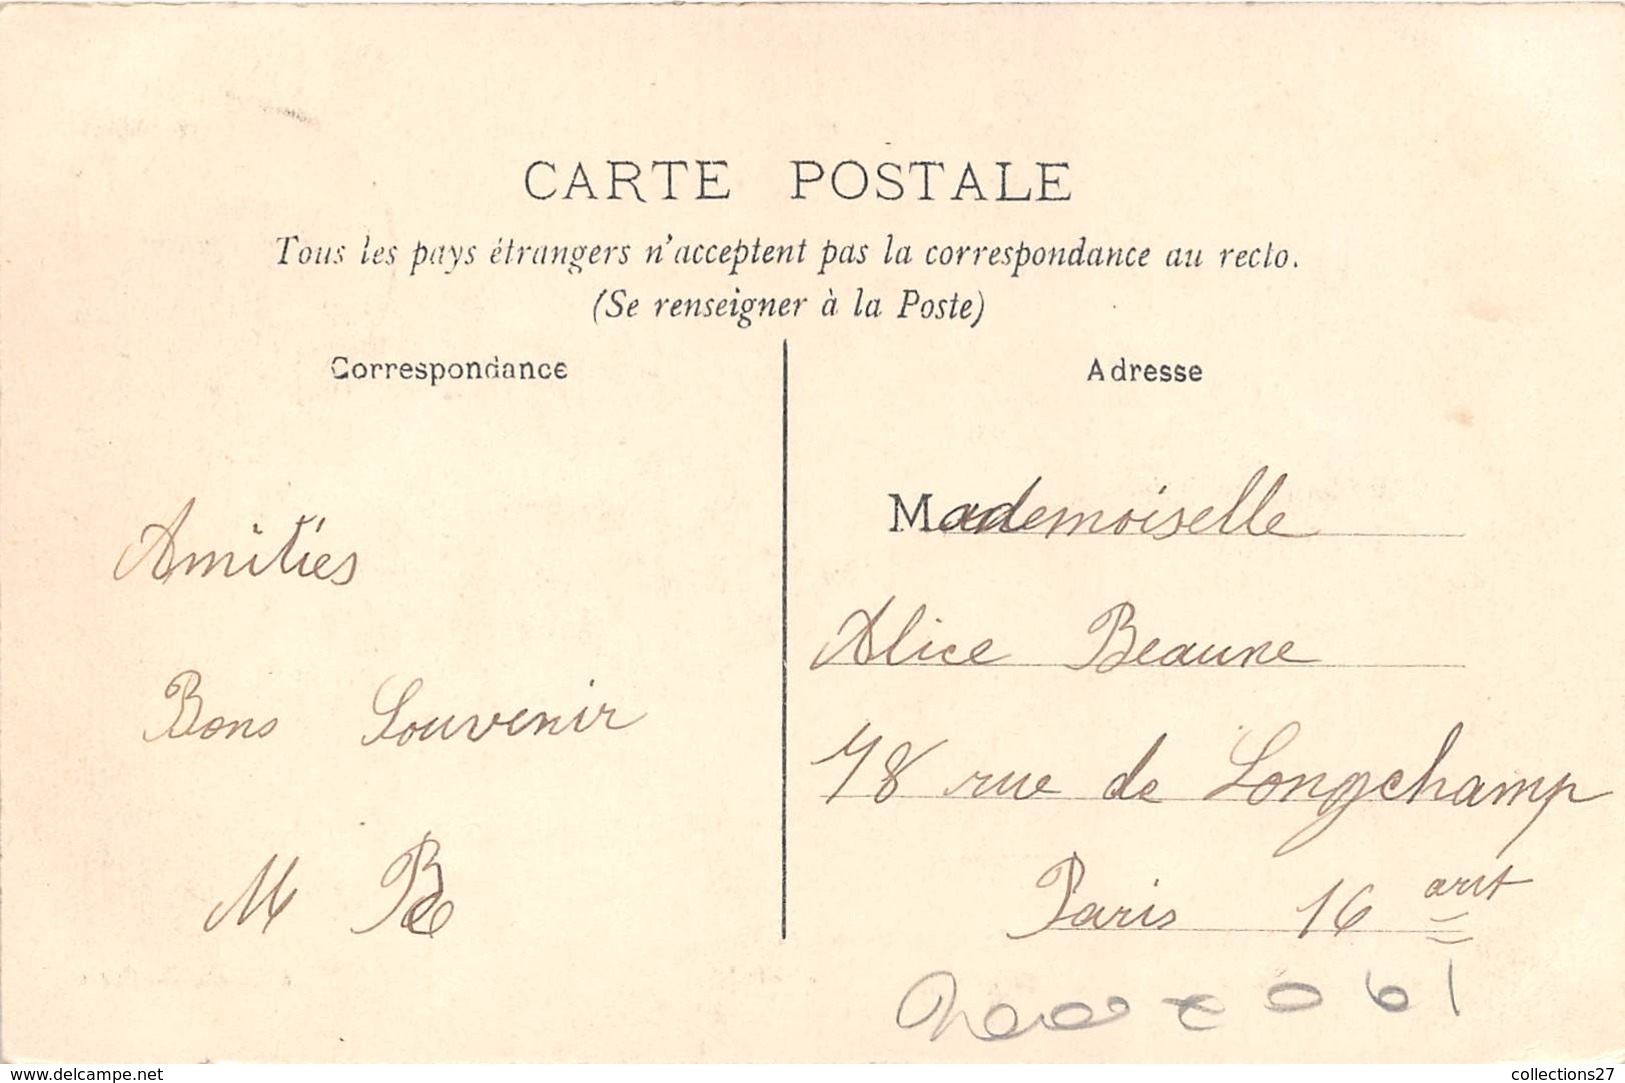 CARTE POSTALE
Tous les pays étrangers n'acceptent pas la correspondance au recto.
(Se renseigner à la Poste)
Correspondance
Adresse
Amitiés
Bons Souvenir
M B
Mademoiselle
Alice Beaune
78 rue de Longchamp
Paris 16 arrt
www.delcampe.net
collections27